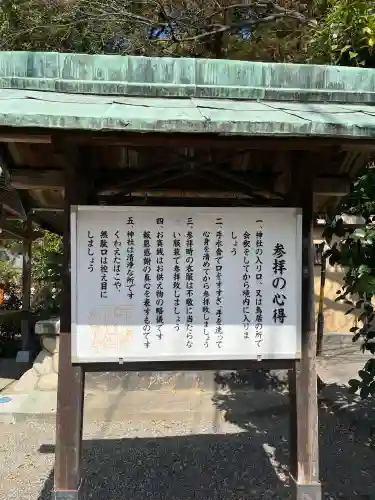 参拝の心得
一、神社の入り口、又は鳥居の所で
会釈をしてから境内に入りま
しょう
二、手水舎で口をすすぎ、手を洗って
心身を清めてから参拝致しま
しょう
三、参拝時の衣服は失礼に当たらな
い服装で参拝致しましょう
四、お賽銭はお供え物の略儀です
報恩感謝の真心を表すものです
五、神社は清浄な所です
くわえたばこや、
無駄口は控え目に
しましょう